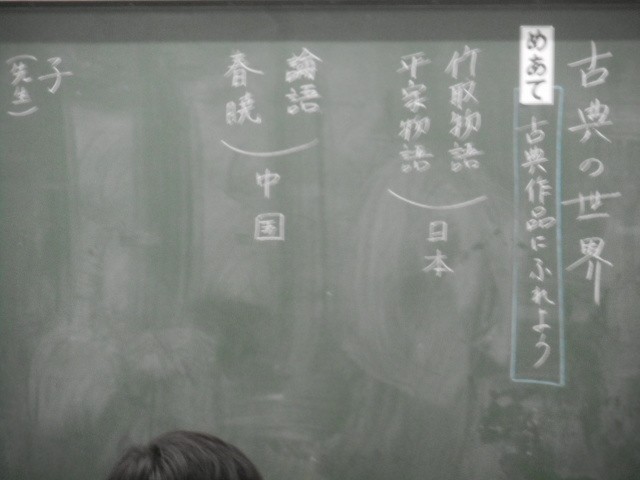 古典の世界
めあて 古典作品にふれよう
竹取物語
平家物語
日本
論語
春暁
中国
子
(先生)